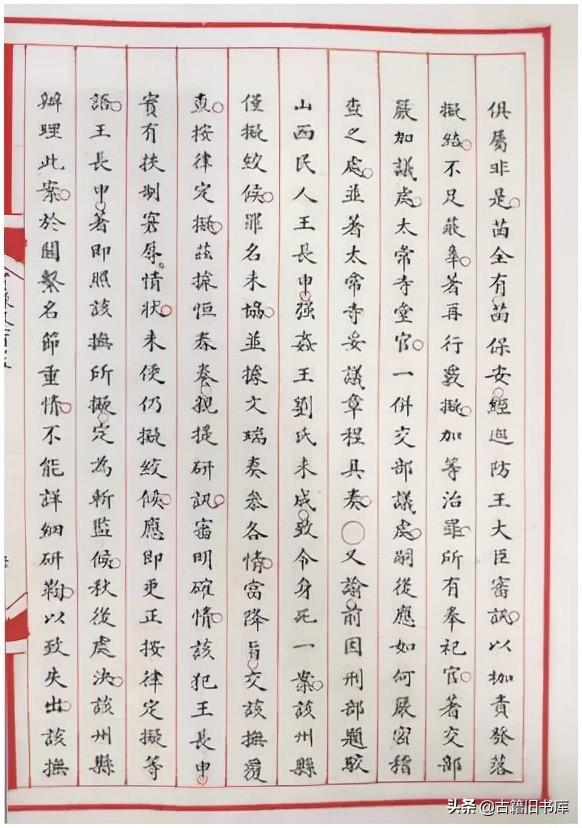 俱屬非是苗全有苗保安經巡防王大臣審訊以枷責發落
擬結不足蔽辜著再行嚴擬加等治罪所有奉祀官著交部
嚴加議處太常寺堂官一併交部議處嗣後應如何嚴密稽
查之處並著太常寺妥議章程具奏○又諭前因刑部題駮
山西民人王長申强姦王劉氏未成致令身死一案該州縣
僅擬絞候罪名未協並據文瑞奏參各情當降旨交該撫覆
查按律定擬茲據恒春奏親提研訊審明確情該犯王長申
實有扶制窘辱情狀未便仍擬絞候應即更正按律定擬等
語王長申著即照該撫所擬定為斬監候秋後處決該州縣
辦理此案於關繫名節重情不能詳細研鞫以致失出該撫
头条@古籍旧书库